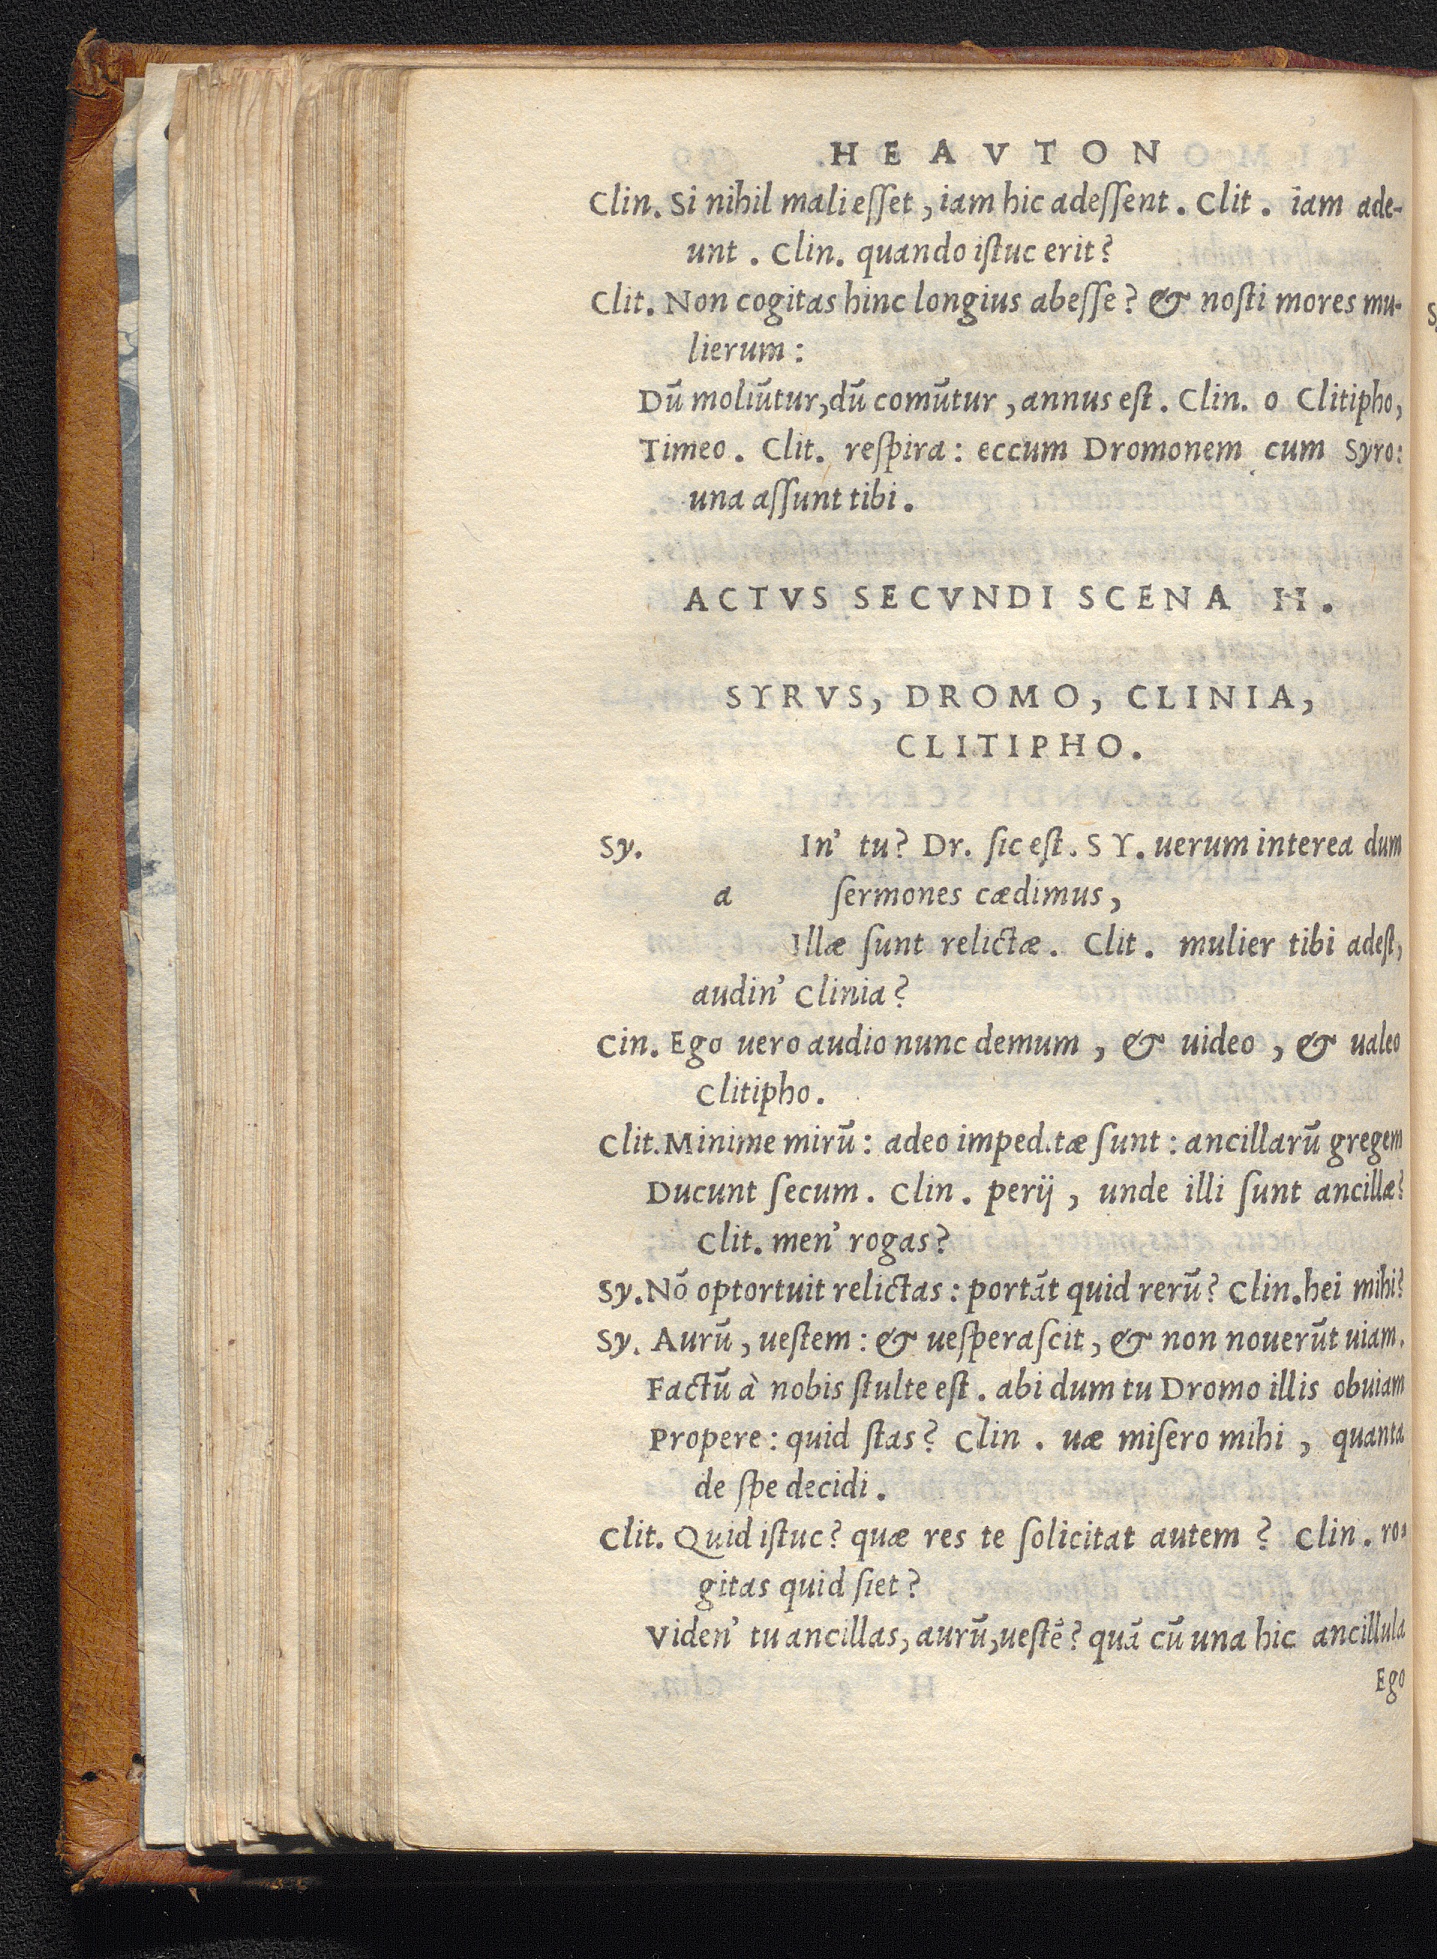 HEAVTON
Clin. Si nihil mali esset, iam hic adessent. Clit. iam ade-
unt. Clin. quando istuc erit?
Clit. Non cogitas hinc longius abesse? & nosti mores mu-
lierum:
Dū moliūtur, dū comūtur, annus est. Clin. o Clitipho,
Timeo. Clit. respira: eccum Dromonem cum Syro:
una assunt tibi.
ACTVS SECVNDI SCENA II.
SYRVS, DROMO, CLINIA,
CLITIPHO.
Sy. In' tu? Dr. sic est. SY. uerum interea dum
a sermones cædimus,
Illæ sunt relictæ. Clit. mulier tibi adest,
audin' Clinia?
Cin. Ego uero audio nunc demum, & uideo, & ualeo
Clitipho.
Clit. Minime mirū: adeo imped.tæ sunt: ancillarū gregem
Ducunt secum. Clin. perij, unde illi sunt ancillæ?
Clit. men' rogas?
Sy. Nō optortuit relictas: portāt quid rerū? Clin. hei mihi?
Sy. Aurū, uestem: & uesperascit, & non nouerūt uiam.
Factū à nobis stulte est. abi dum tu Dromo illis obuiam
Propere: quid stas? Clin. uæ misero mihi, quanta
de spe decidi.
Clit. Quid istuc? quæ res te solicitat autem? Clin. ro-
gitas quid siet?
Viden' tu ancillas, aurū, uestē? quā cū una hic ancillula
Ego